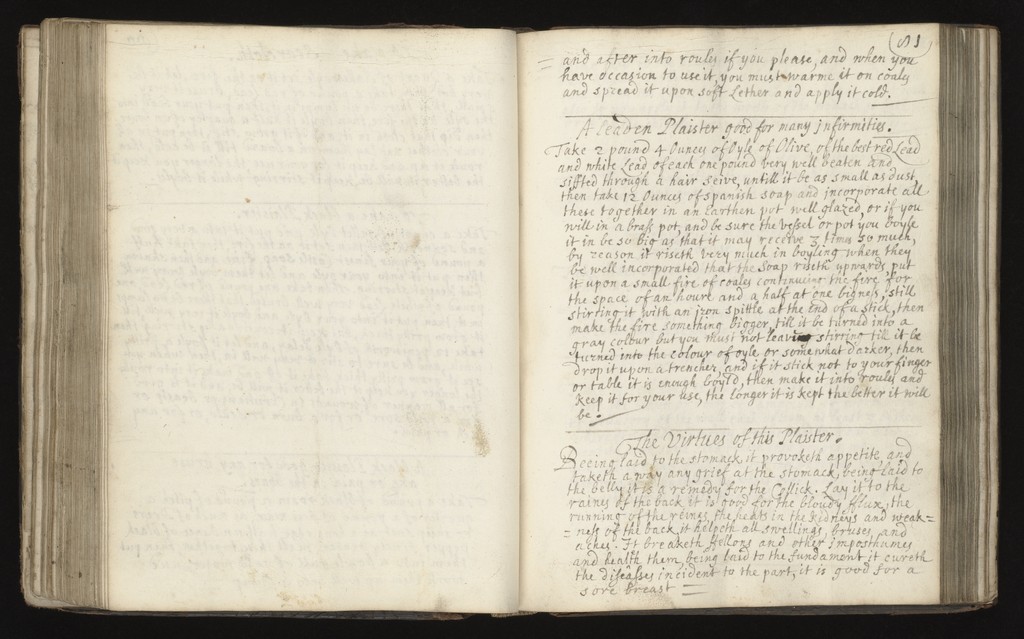 81
and after into roules if you please, and when you
= have occasion to use it, you must warme it on coales
and spread it upon soft Lether and apply it cold.
A Leaden Plaister good for many jnfirmities.
Take 2 pound 4 Ounces of Oyle of Olive, of the best red Lead
and white Lead of each one pound very well beaten and
siffted through a hair seive, untill it be as small as dust,
then take 12 Ounces of spanish soap and jncorporate all
these together in an Earthen pot well glazed, or if you
will in a brass pot, and be sure the vessel or pot you boyle
it in be so big as that it may receive 3 times so much,
by reason it riseth very much in boyling when they
be well incorporated that the soap riseth upwards, put
it upon a small fire of coales continueing the fire for
the space of an houre and a half at one bigness, still
stirring it with an jron spittle at the end of a stick, then
make the fire something bigger, till it be turned into a
gray colour but you must not leaving stirring till it be
turned into the colour of oyle or somewhat darker, then
drop it upon a trencher, and if it stick not to your finger
or table it is enough boyl'd, then make it into roules and
keep it for your use, the longer it is kept the better it will
be.
The Virtues of this Plaister.
Beeing laid to the stomack it provoketh appetite, and
taketh a way any grief at the stomack, being laid to
the belly it is a remady for the Collick. Lay it to the
raines of the back it is good for the bloudy fflux, the
running of the reines, the heats in the Kidneys and weak=
= ness of the back it helpeth all swellings, bruses, and
aches. It breaketh ffellons and other jmposthumes
and health them, being laid to the fundament it cureth
the diseases incident to the part, it is good for a
sore breast